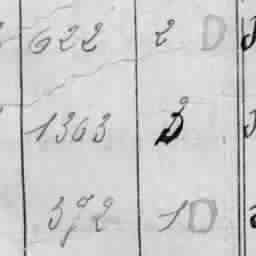 622 2 D
1363
372 1 D